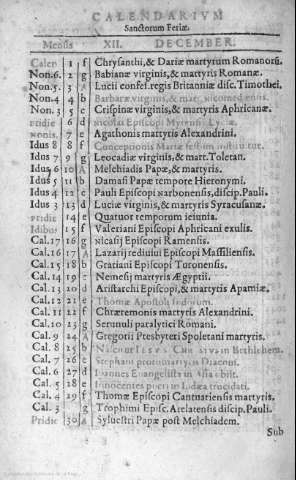 CALENDARIVM
Sanctorum Feriæ.
Mensis XII. DECEMBER.
Calen 1 f Chrysanthi, & Dariæ martyrum Romanorū.
Non. 6. 2 g Babianæ virginis, & martyris Romanæ.
Non. 5. 3 A Lucii confes. regis Britanniæ disc. Timothei.
Non. 4 4 b Barbaræ virginis, & mar. nicomediensis
Non. 3 5 c Crispinæ virginis, & martyris Aphricanæ.
Pridie 6 d Nicolai Episcopi Myrensis Lyciæ.
nonis. 7 e Agathonis martyris Alexandrini.
Idus 8 8 f Conceptionis Mariæ festum institutum.
Idus 7 9 g Leocadiæ virginis, & mart. Toletan.
Idus 6 10 A Melchiadis Papæ, & martyris.
Idus 5 11 b Damasi Papæ tempore Hieronymi.
Idus 4 12 c Pauli Episcopi narbonensis, discip. Pauli.
Idus 3 13 d Luciæ virginis, & martyris Syracusanæ.
Pridie 14 e Quatuor temporum ieiunia.
Idibus 15 f Valeriani Episcopi Aphricani exulis.
Cal. 17 16 g nicasij Episcopi Ramensis.
Cal. 16 17 A Lazari rediuiui Episcopi Massiliensis.
Cal. 15 18 b Gratiani Episcopi Turonensis.
Cal. 14 19 c Nemesij martyris Ægyptii.
Cal. 13 20 d Aristarchi Episcopi, & martyris Apamiæ.
Cal. 12 21 e Thomæ Apostoli Indorum.
Cal. 11 22 f Chæremonis martyris Alexandrini.
Cal. 10 23 g Seruuli paralytici Romani.
Cal. 9 24 A Gregorii Presbyteri Spoletani martyris.
Cal. 8 25 b Christi in Bethlehem.
Cal. 7 26 c Stephani protomartyris Diaconi.
Cal. 6 27 d Ioannes Euangelista in Asia obiit.
Cal. 5 28 e Innocentes pueri in Iudæa trucidati.
Cal. 4 29 f Thomæ Episcopi Cantuariensis martyris.
Cal. 3 g Trophimi Episc. Arelatensis discip. Pauli.
Pridie 30 A Syluestri Papæ post Melchiadem.
Sub